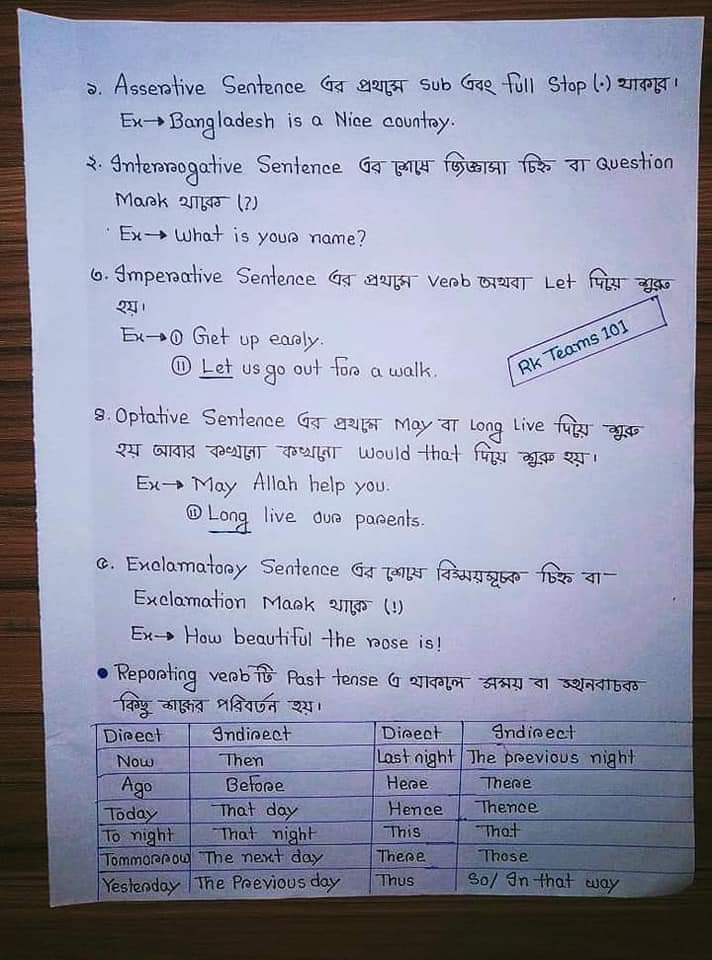 ১. Assertive Sentence এর প্রথমে sub এবং full Stop (.) থাকবে।
Ex→ Bangladesh is a Nice country.
২. Interrogative Sentence এর শেষে জিজ্ঞাসা চিহ্ন বা Question
Mark থাকে (?)
Ex→ What is your name?
৩. Imperative Sentence এর প্রথমে verb অথবা Let দিয়ে শুরু
হয়।
Ex→ ① Get up early.
⑪ Let us go out for a walk.
RK Teams 101
৪. Optative Sentence এর প্রথমে May বা Long Live দিয়ে শুরু
হয় আবার কখনো কখনো would that দিয়ে শুরু হয়।
Ex→ May Allah help you.
⑪ Long live our parents.
৫. Exclamatory Sentence এর শেষে বিস্ময়সূচক চিহ্ন বা
Exclamation Mark থাকে (!)
Ex→ How beautiful the rose is!
• Reporting verb টি Past tense এ থাকলে সময় বা স্থানবাচক
কিছু শব্দের পরিবর্তন হয়।
Direct Indirect Direct Indirect
Now Then Last night The previous night
Ago Before Here There
Today That day Hence Thence
To night That night This That
Tommorrow The next day There Those
Yesterday The Previous day Thus So/ In that way